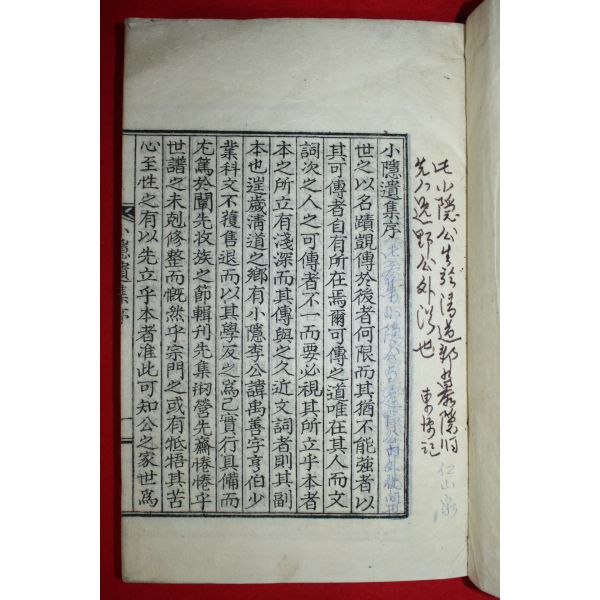 此小隱公生於清道郡
先人逸野公外
也
小隱遺集序
世之以名蹟覬傳於後者何限而其猶不能強者以
其可傳者自有所在焉爾可傳之道唯在其人而文
詞次之人之可傳者不一而要必視其所立乎本者
本之所立有淺深而其傳與之久近文詞者則其副
本也逞歲清道之鄉有小隱李公諱禹善字亨伯少
業科文不獲售退而以其學友之爲己實行具備而
尤篤於闡先收族之節輯刊先集刱營先齋惓惓乎
世譜之未剋修整而慨然乎宗門之或有牴牾其苦
心至性之有以先立乎本者准此可知公之家世爲
小隱遺集序
一